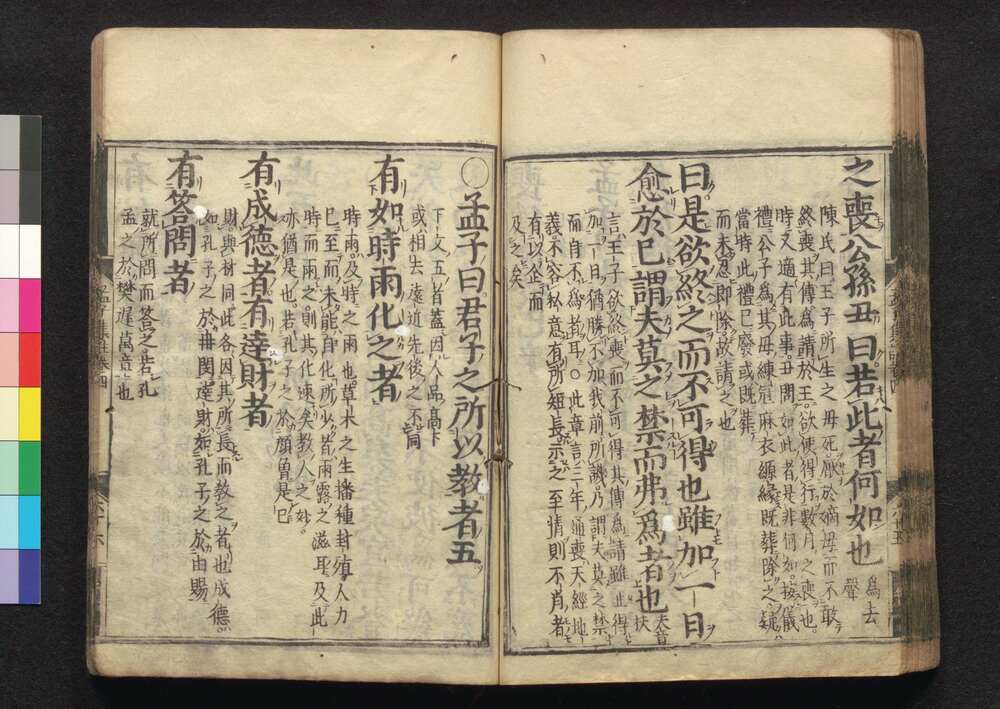 之喪公孫丑曰若此者何如也
爲去
聲
陳氏曰王子所生之母死厭於嫡母而不敢
終喪其傳爲請於王欲使得行數月之喪也
時又適有此事丑問如此者是非何如按儀
禮公子爲其母練冠麻衣縓緣既葬除之疑
當時此禮已廢或既葬
而未忍即除故請之也
曰是欲終之而不可得也雖加一日
愈於已謂夫莫之禁而弗爲者也
夫音
扶
言王子欲終喪而不可得其傳爲請雖止得
加一日猶勝不加我前所譏乃謂夫莫之禁
而自不爲者耳○此章言三年通喪天經地
義不容私意有所短長示之至情則不肖者
有以企而
及之矣
○孟子曰君子之所以教者五
下文五者蓋因人品高下
或相去遠近先後之不同
有如時雨化之者
時雨及時之雨也草木之生播種封殖人力
已至而未能自化所少者雨露之滋耳及此
時而雨之則其化速矣教人之妙
亦猶是也若孔子之於顏曾是已
有成德者有達財者
財與材同此各因其所長而教之者也成德
如孔子之於冉閔達財如孔子之於由賜
有答問者
就所問而答之若孔
孟之於樊遲萬章也
孟子集註卷四